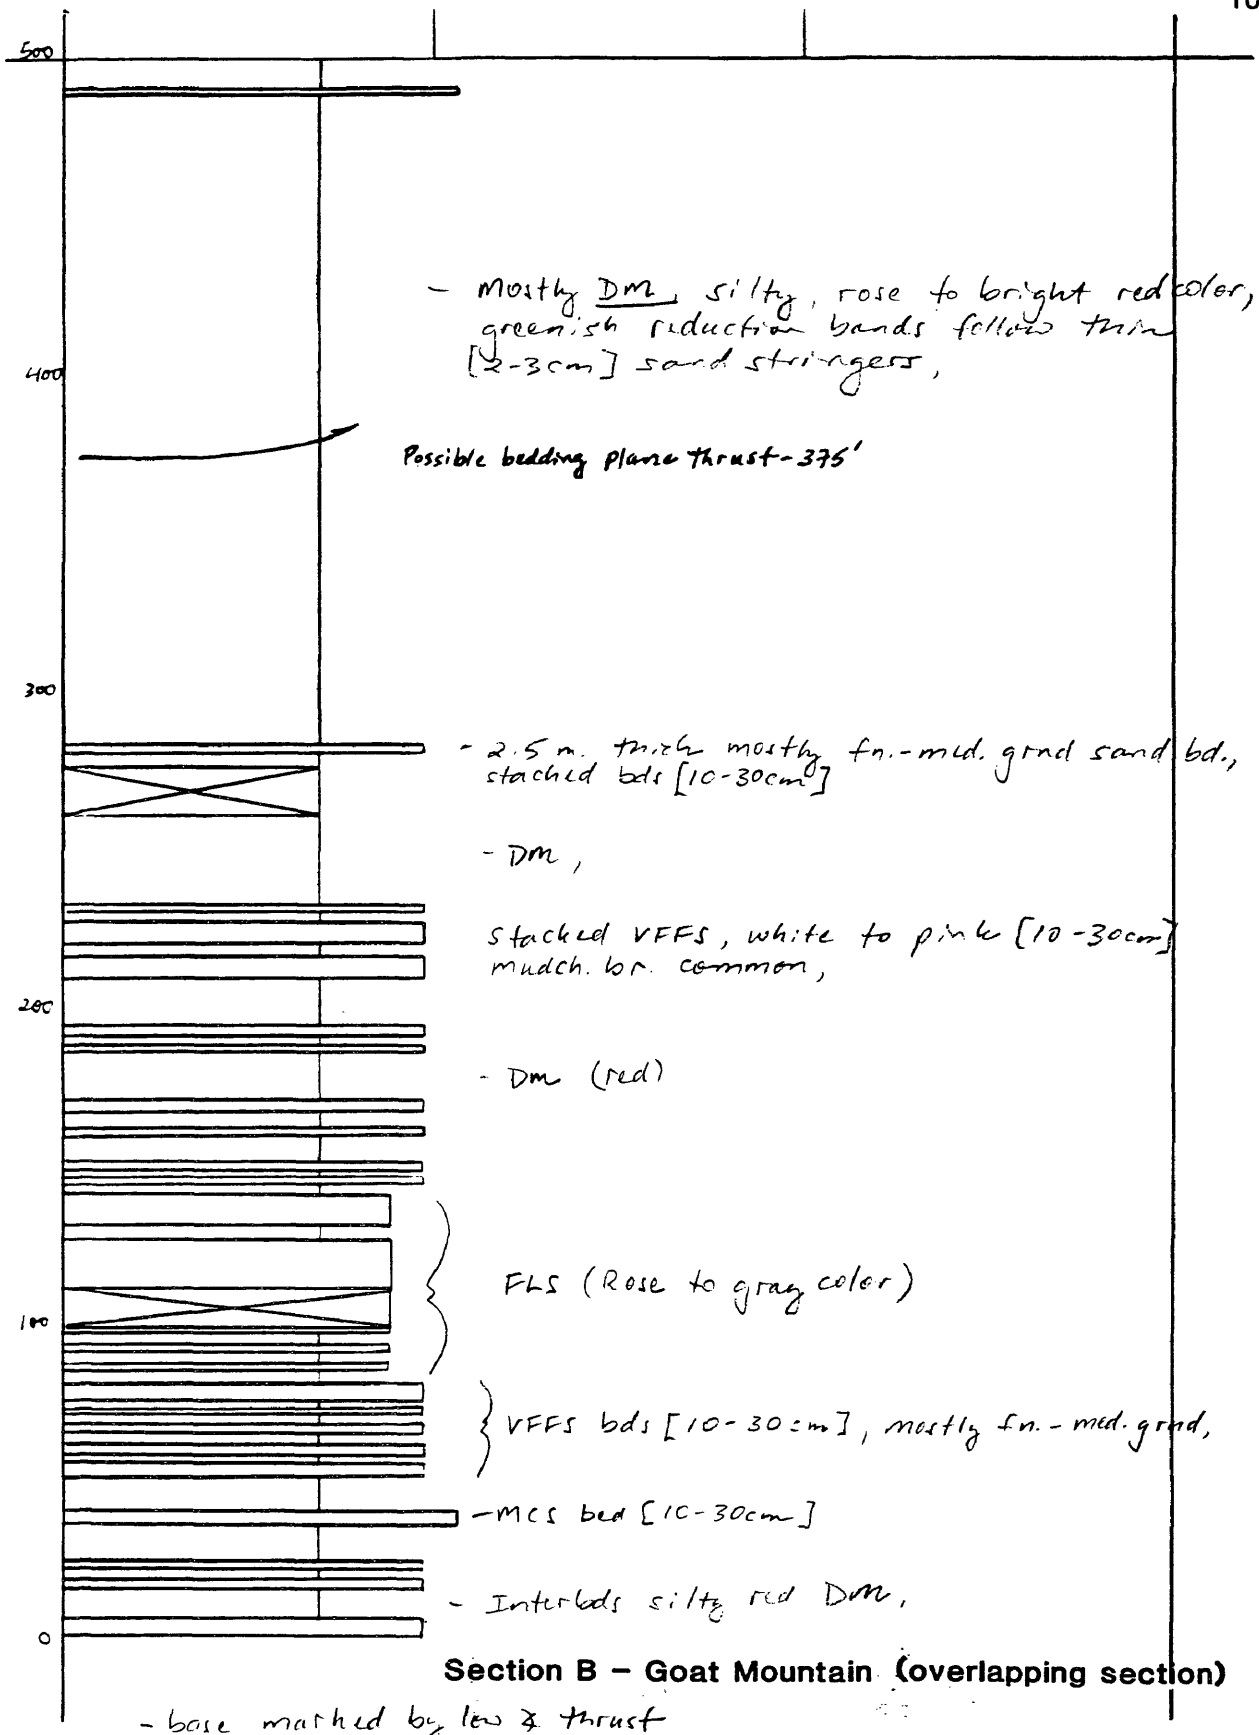 10
500
- Mostly DM, silty, rose to bright red color,
greenish reduction bands follow thin
[2-3cm] sand stringers,
400
Possible bedding plane thrust - 375'
300
- 2.5 m. thick mostly fn.-med. grnd sand bd.,
stacked bds [10-30cm]
- DM,
stacked VFFS, white to pink [10-30cm]
mudch. br. common,
200
- DM (red)
FLS (Rose to gray color)
100
VFFS bds [10-30cm], mostly fn.-med. grnd,
- MCS bed [10-30cm]
- Interbds silty red DM,
0
Section B – Goat Mountain (overlapping section)
- base marked by low ∡ thrust